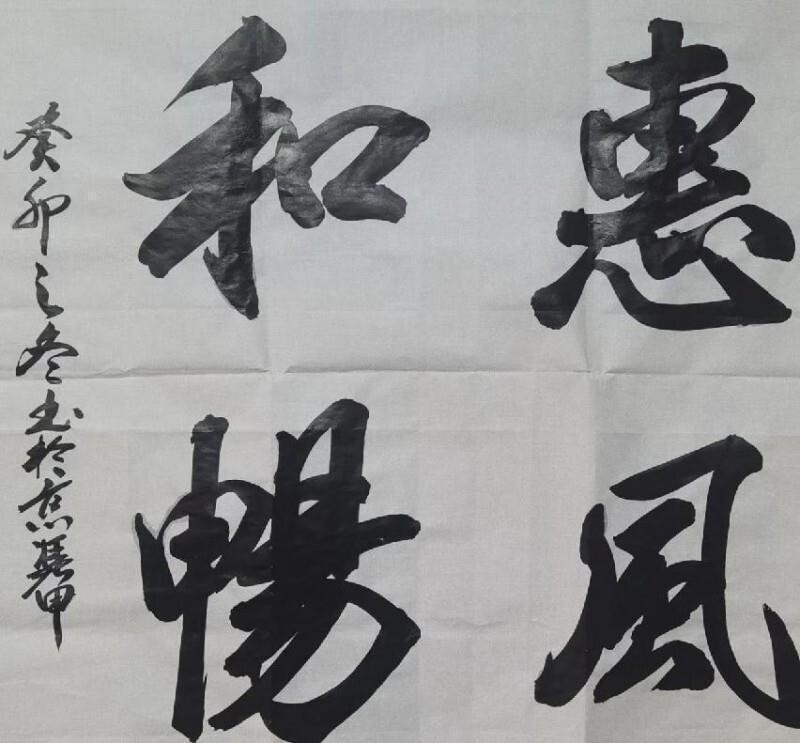 惠風
和暢
癸卯之冬书於京